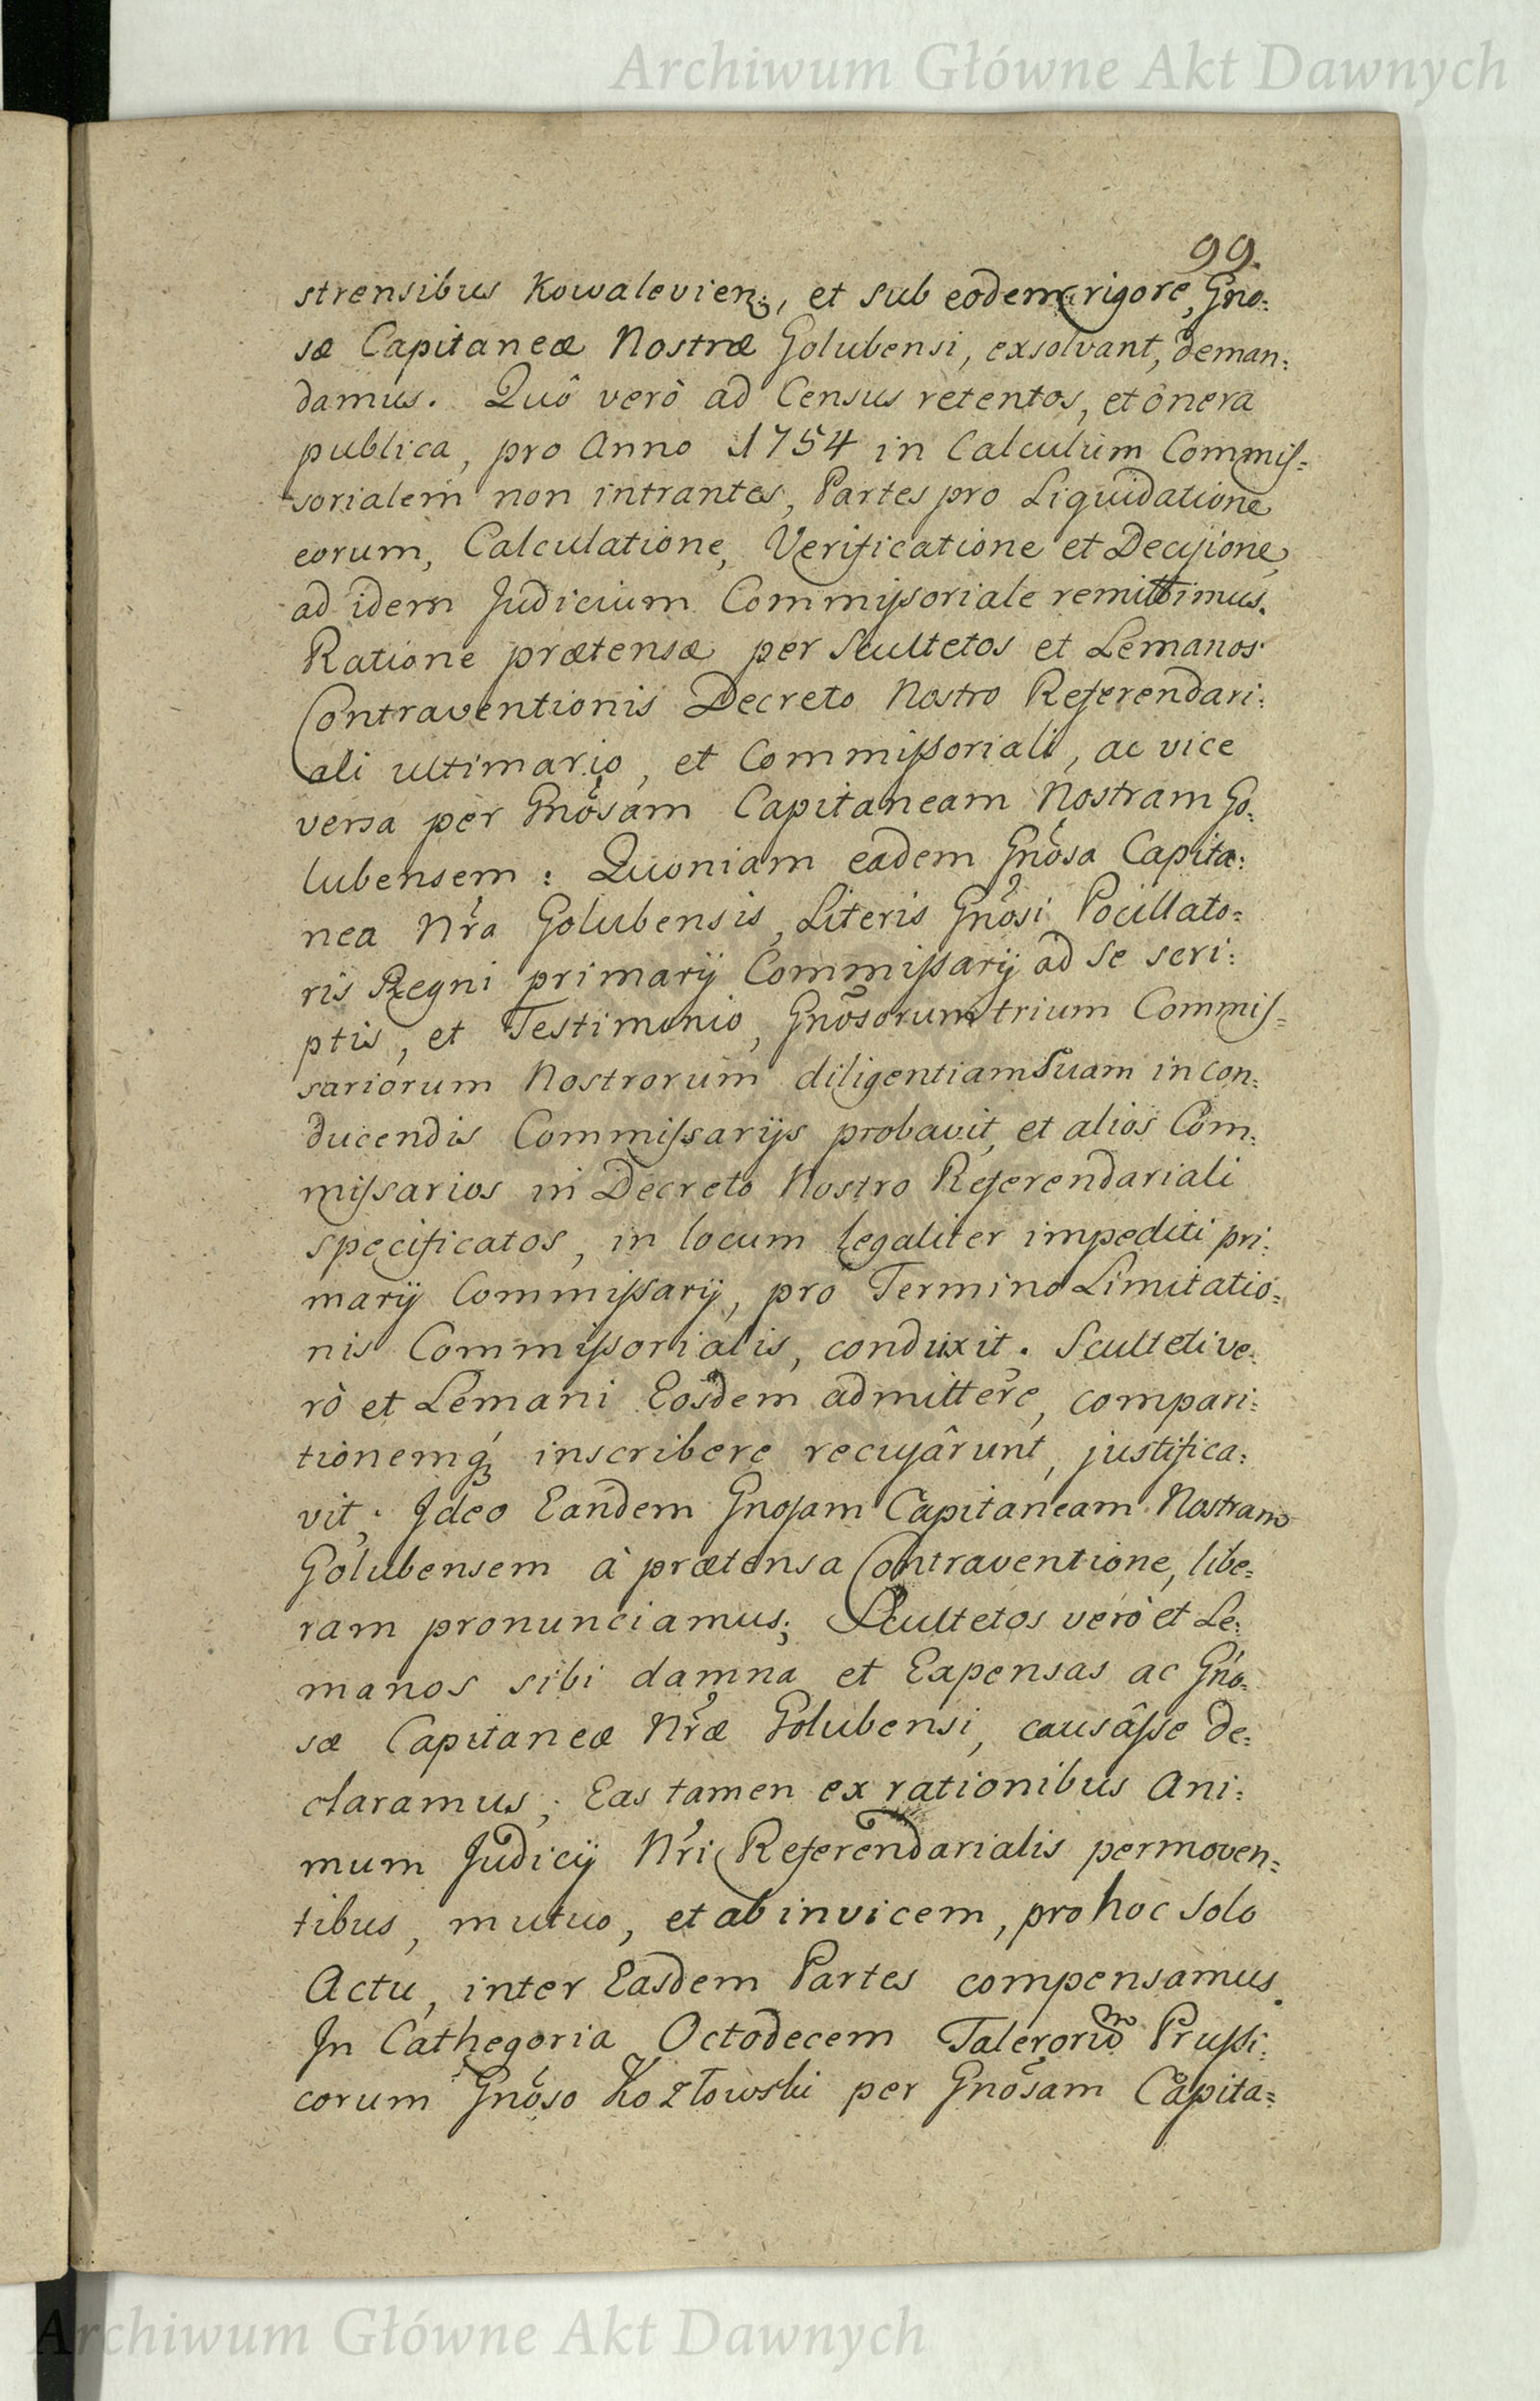 Archiwum Główne Akt Dawnych
99.
strensibus Kowalevien:, et sub eodem rigore, Gno:
sæ Capitaneæ Nostræ Golubensi, exsolvant, deman:
damus. Quô verò ad Census retentos, et onera
publica, pro Anno 1754 in Calculum Commiſ=
sorialem non intrantes, Partes pro Liquidatione
eorum, Calculatione, Verificatione et Deciſione,
ad idem Judicium Commiſsoriale remittimus.
Ratione prætensæ per Scultetos et Lemanos
Contraventionis Decreto Nostro Referendari:
ali ultimario, et Commiſsoriali, ac vice
versa per Gnösam Capitaneam Nostram Go:
lubensem: Quoniam eadem Gnösa Capita:
nea Nr̃a Golubensis, Literis Gnösi Pocillato=
ris Regni primarij Commiſsarij ad se scri:
ptis, et Testimonio, Gnösorum trium Commiſ=
sariorum Nostrorum diligentiam Suam in con:
ducendis Commiſsarijs probavit, et alios Com:
miſsarios in Decreto Nostro Referendariali
specificatos, in locum legaliter impediti pri:
marij Commiſsarij, pro Termino Limitatio=
nis Commiſsorialis, conduxit. Sculteti ve:
rò et Lemani Eosdem admittere, compari:
tionemq́ꝫ inscribere recuſârunt, justifica:
vit. Ideo Eandem Gnoſam Capitaneam Nostram
Golubensem à prætensa Contraventione, libe=
ram pronunciamus; Scultetos verò et Le:
manos sibi damna et Expensas ac Gńo:
sæ Capitaneæ Nr̃æ Golubensi, causâſse de:
claramus; Eas tamen ex rationibus Ani:
mum Judicij Nr̃i Referendarialis permoven=
tibus, mutuo, et ab invicem, pro hoc solo
Actu, inter Easdem Partes compensamus.
In Cathegoria Octodecem Talerorum Pruſsi:
corum Gnöso Kozłowski per Gnösam Capita=
Archiwum Główne Akt Dawnych